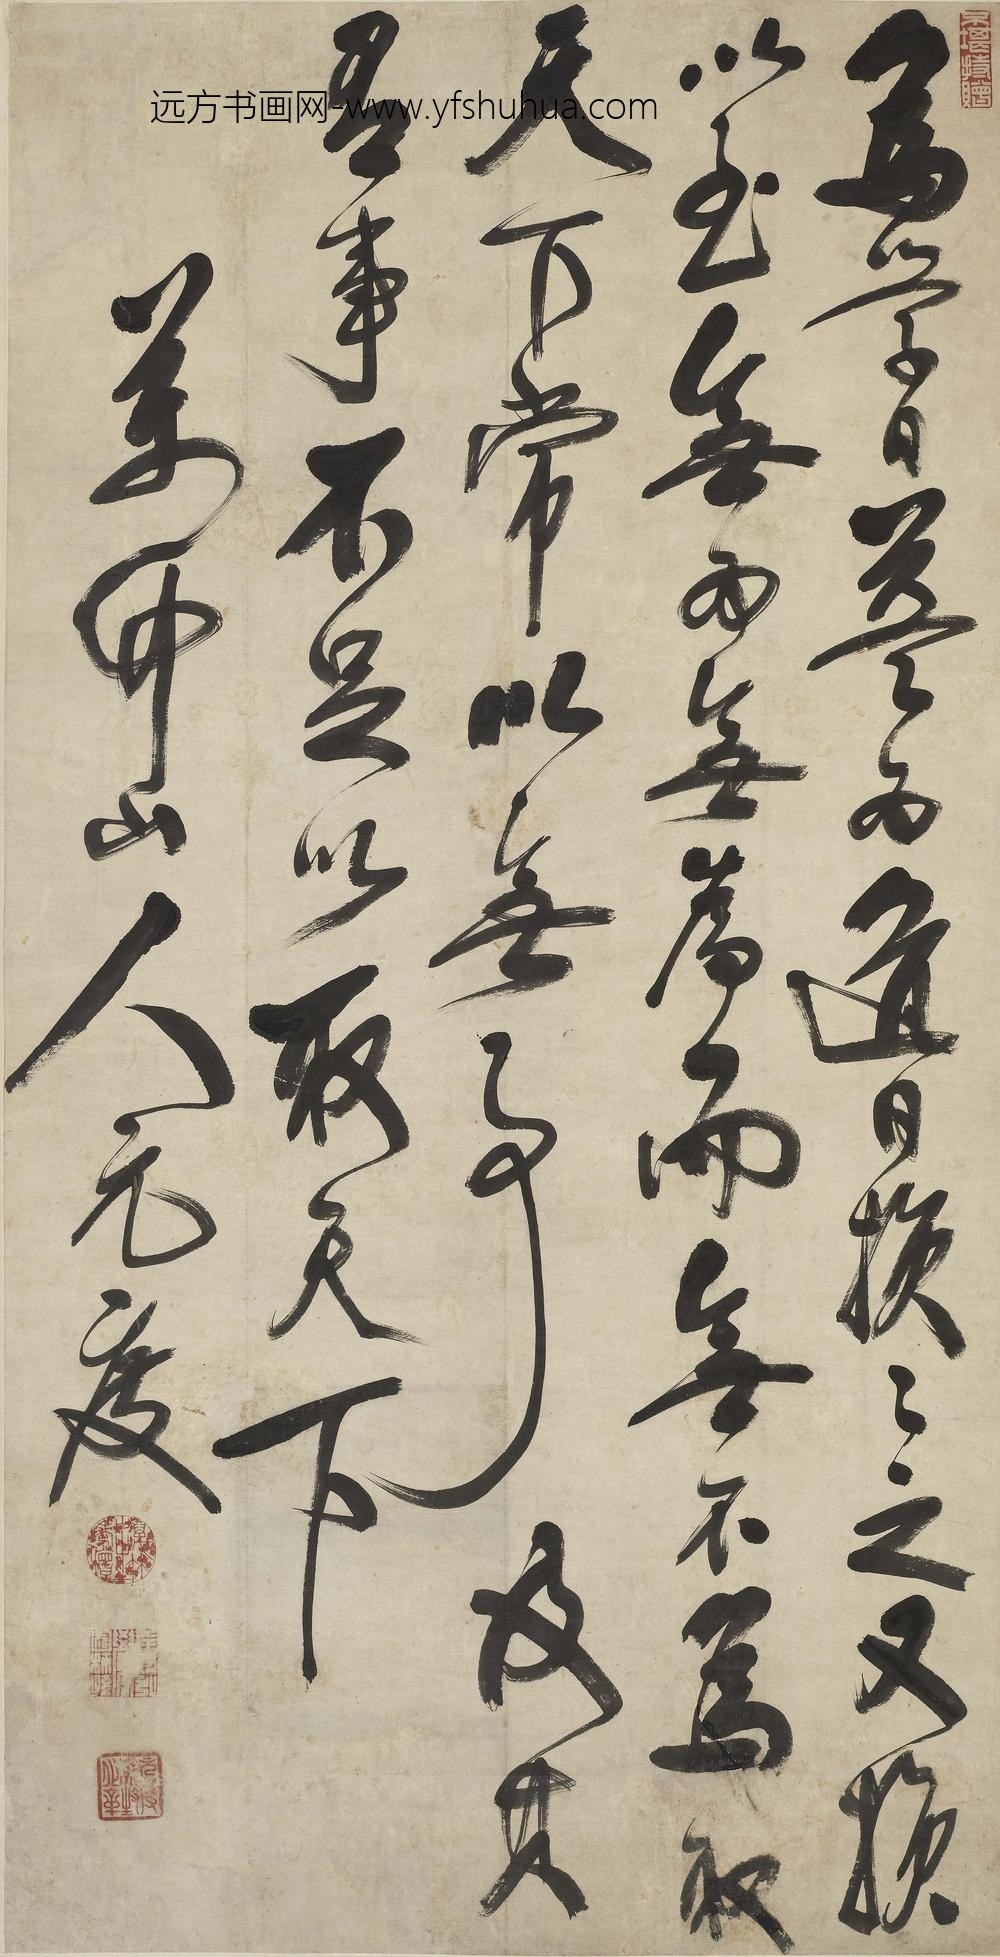 远方书画网-www.yfshuhua.com
為學日益為道日損〻之又損
以至無為無為而無不為取
天下常以無事及其
有事不足以取天下
萬山人元度